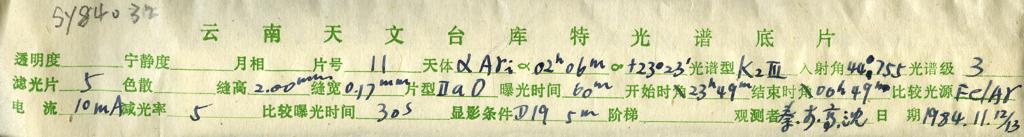 SY84032
云南天文台库特光谱底片
透明度 宁静度 月相 片号 11 天体 α Ari ∝ 02h06m ∝ +23°23′ 光谱型 K2III 入射角 44.°755 光谱级 3
滤光片 5 色散 缝高 2.00mm 缝宽 0.17mm 片型 IIaO 曝光时间 60m 开始时刻 23h49m 结束时刻 00h49m 比较光源 Fe/Ar
电流 10mA 减光率 5 比较曝光时间 30s 显影条件 D19 5m 阶梯 观测者 日期 1984.11.12/13